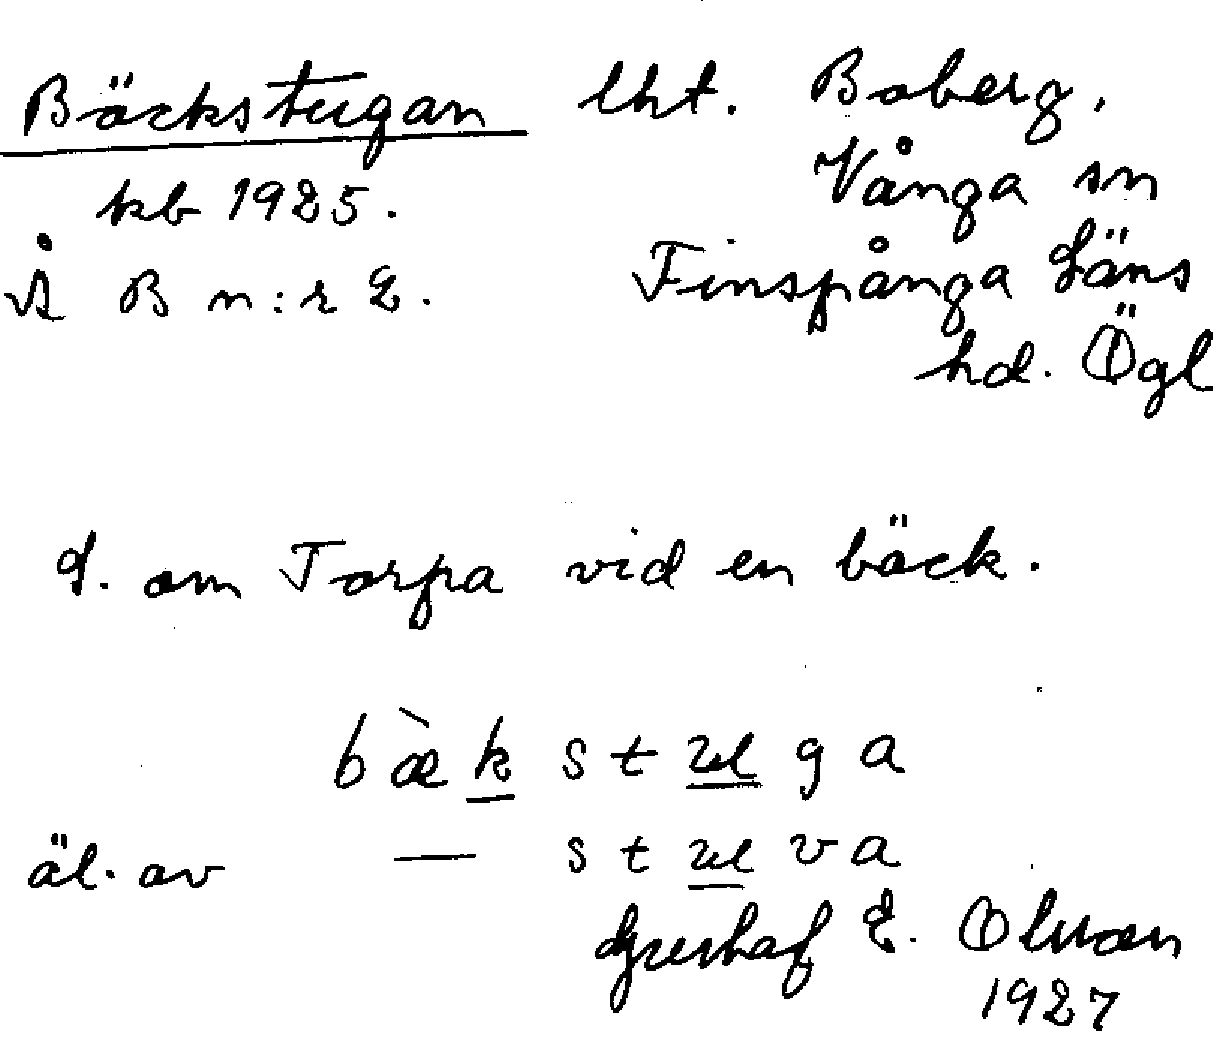 Bäckstugan lht. Boberg,
kb 1925. Vånga sn
Å B n:r 2. Finspånga Läns
hd. Ögl
d. om Torpa vid en bäck.
bæ̀k stuga
äl. av — stuva
Gusthaf E. Olsson
1927